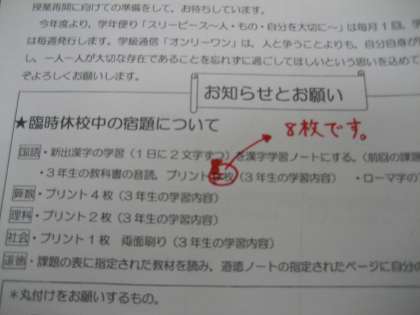 授業再開に向けての準備をして、お待ちしています。
今年度より、学年便り「スリーピース～人・もの・自分を大切に～」は毎月1回、
は毎週発行します。学級通信「オンリーワン」は、人と争うことよりも、自分自身が
し、一人一人が大切な存在であることを忘れずに過ごしてほしいという思いを込めて
ぞよろしくお願いします。
お知らせとお願い
★臨時休校中の宿題について
8枚です。
国語・新出漢字の学習（1日に2文字ずつ）を漢字学習ノートにする。（前回の課題
・3年生の教科書の音読、プリント 枚（3年生の学習内容） ・ローマ字の
算数・プリント4枚（3年生の学習内容）
理科・プリント2枚（3年生の学習内容）
社会・プリント1枚 両面刷り（3年生の学習内容）
道徳・課題の表に指定された教材を読み、道徳ノートの指定されたページに自分の
＊丸付けをお願いするもの。